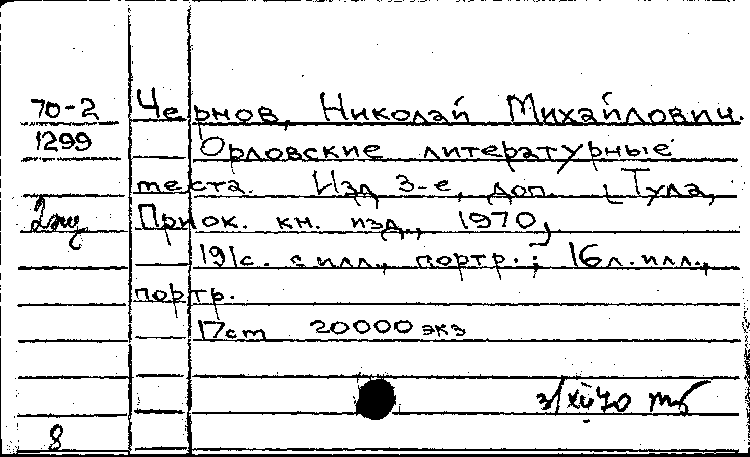 70-2 Чернов, Николай Михайлович.
1299 Орловские литературные
места. Изд 3-е, доп. [Тула,
2 экз Приок. кн. изд., 1970]
191с. с илл., портр.; 16л. илл.,
портр.
17см 20000 экз
3/XII 70
8